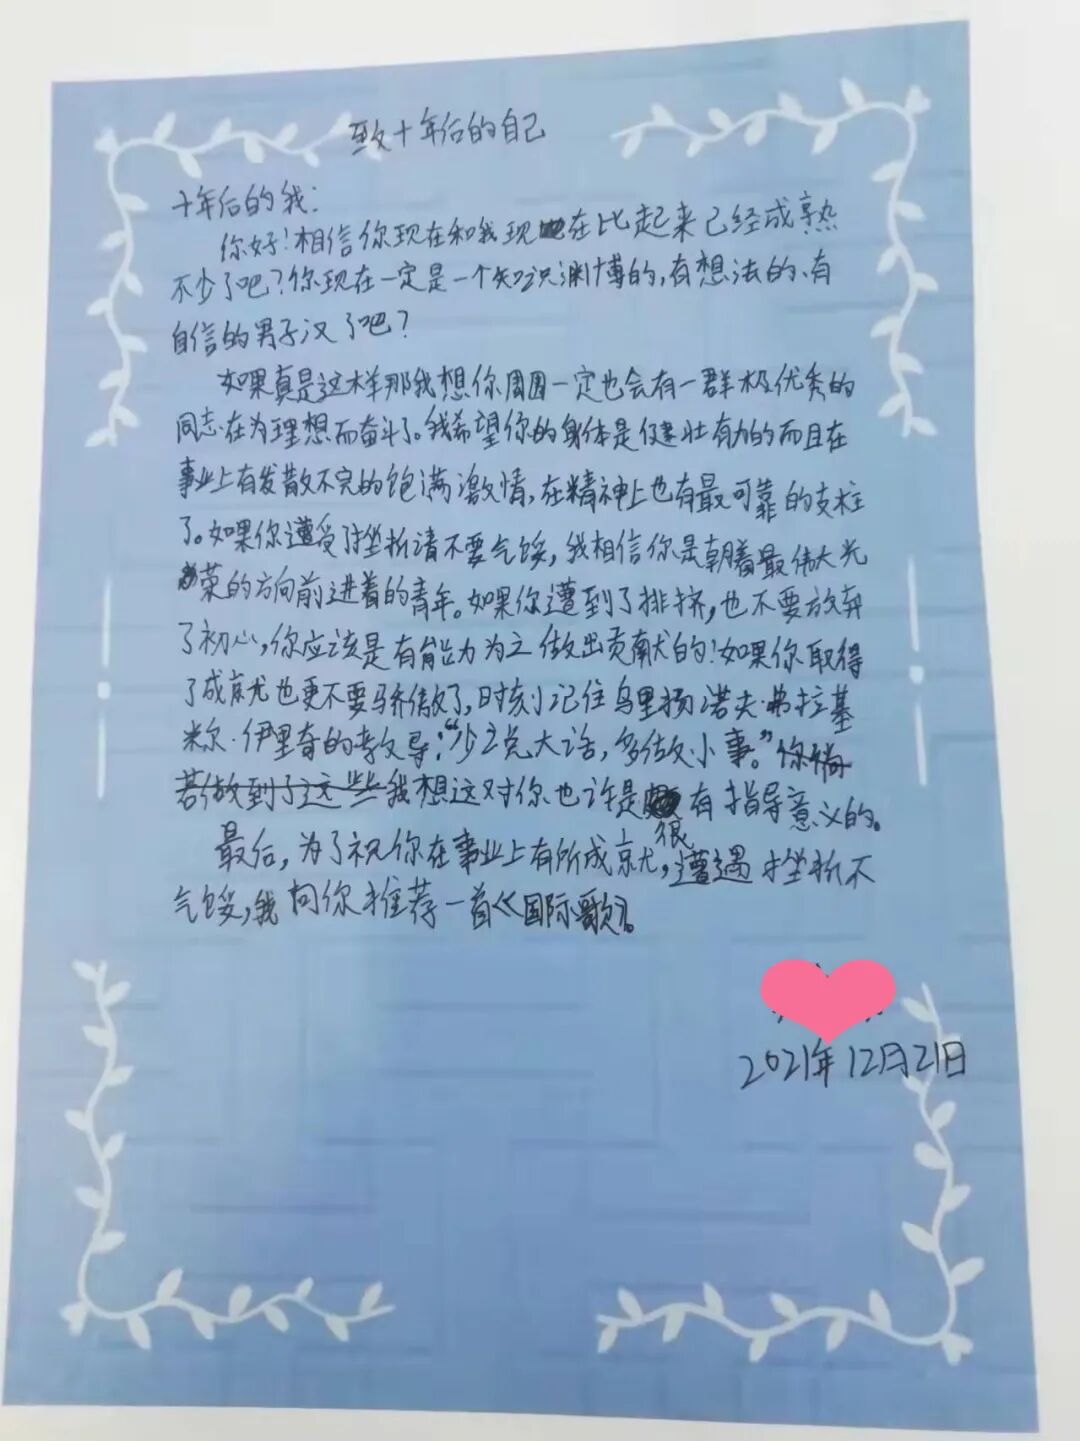 致十年后的自己
十年后的我:
你好!相信你现在和我现在比起来已经成熟
不少了吧?你现在一定是一个知识渊博的,有想法的、有
自信的男子汉了吧?
如果真是这样那我想你周围一定也会有一群极优秀的
同志在为理想而奋斗了。我希望你的身体是健壮有力的而且在
事业上有发散不完的饱满激情,在精神上也有最可靠的支柱
了。如果你遭受了挫折请不要气馁,我相信你是朝着最伟大光
荣的方向前进着的青年。如果你遭到了排挤,也不要放弃
了初心,你应该是有能力为之做出贡献的!如果你取得
了成就也更不要骄傲了,时刻记住乌里扬诺夫·弗拉基
米尔·伊里奇的教导:“少说大话,多做小事。”你倘
若做到了这些我想这对你也许是很有指导意义的。
最后,为了祝你在事业上有所成就,遭遇挫折不
气馁,我向你推荐一首《国际歌》。
2021年12月21日